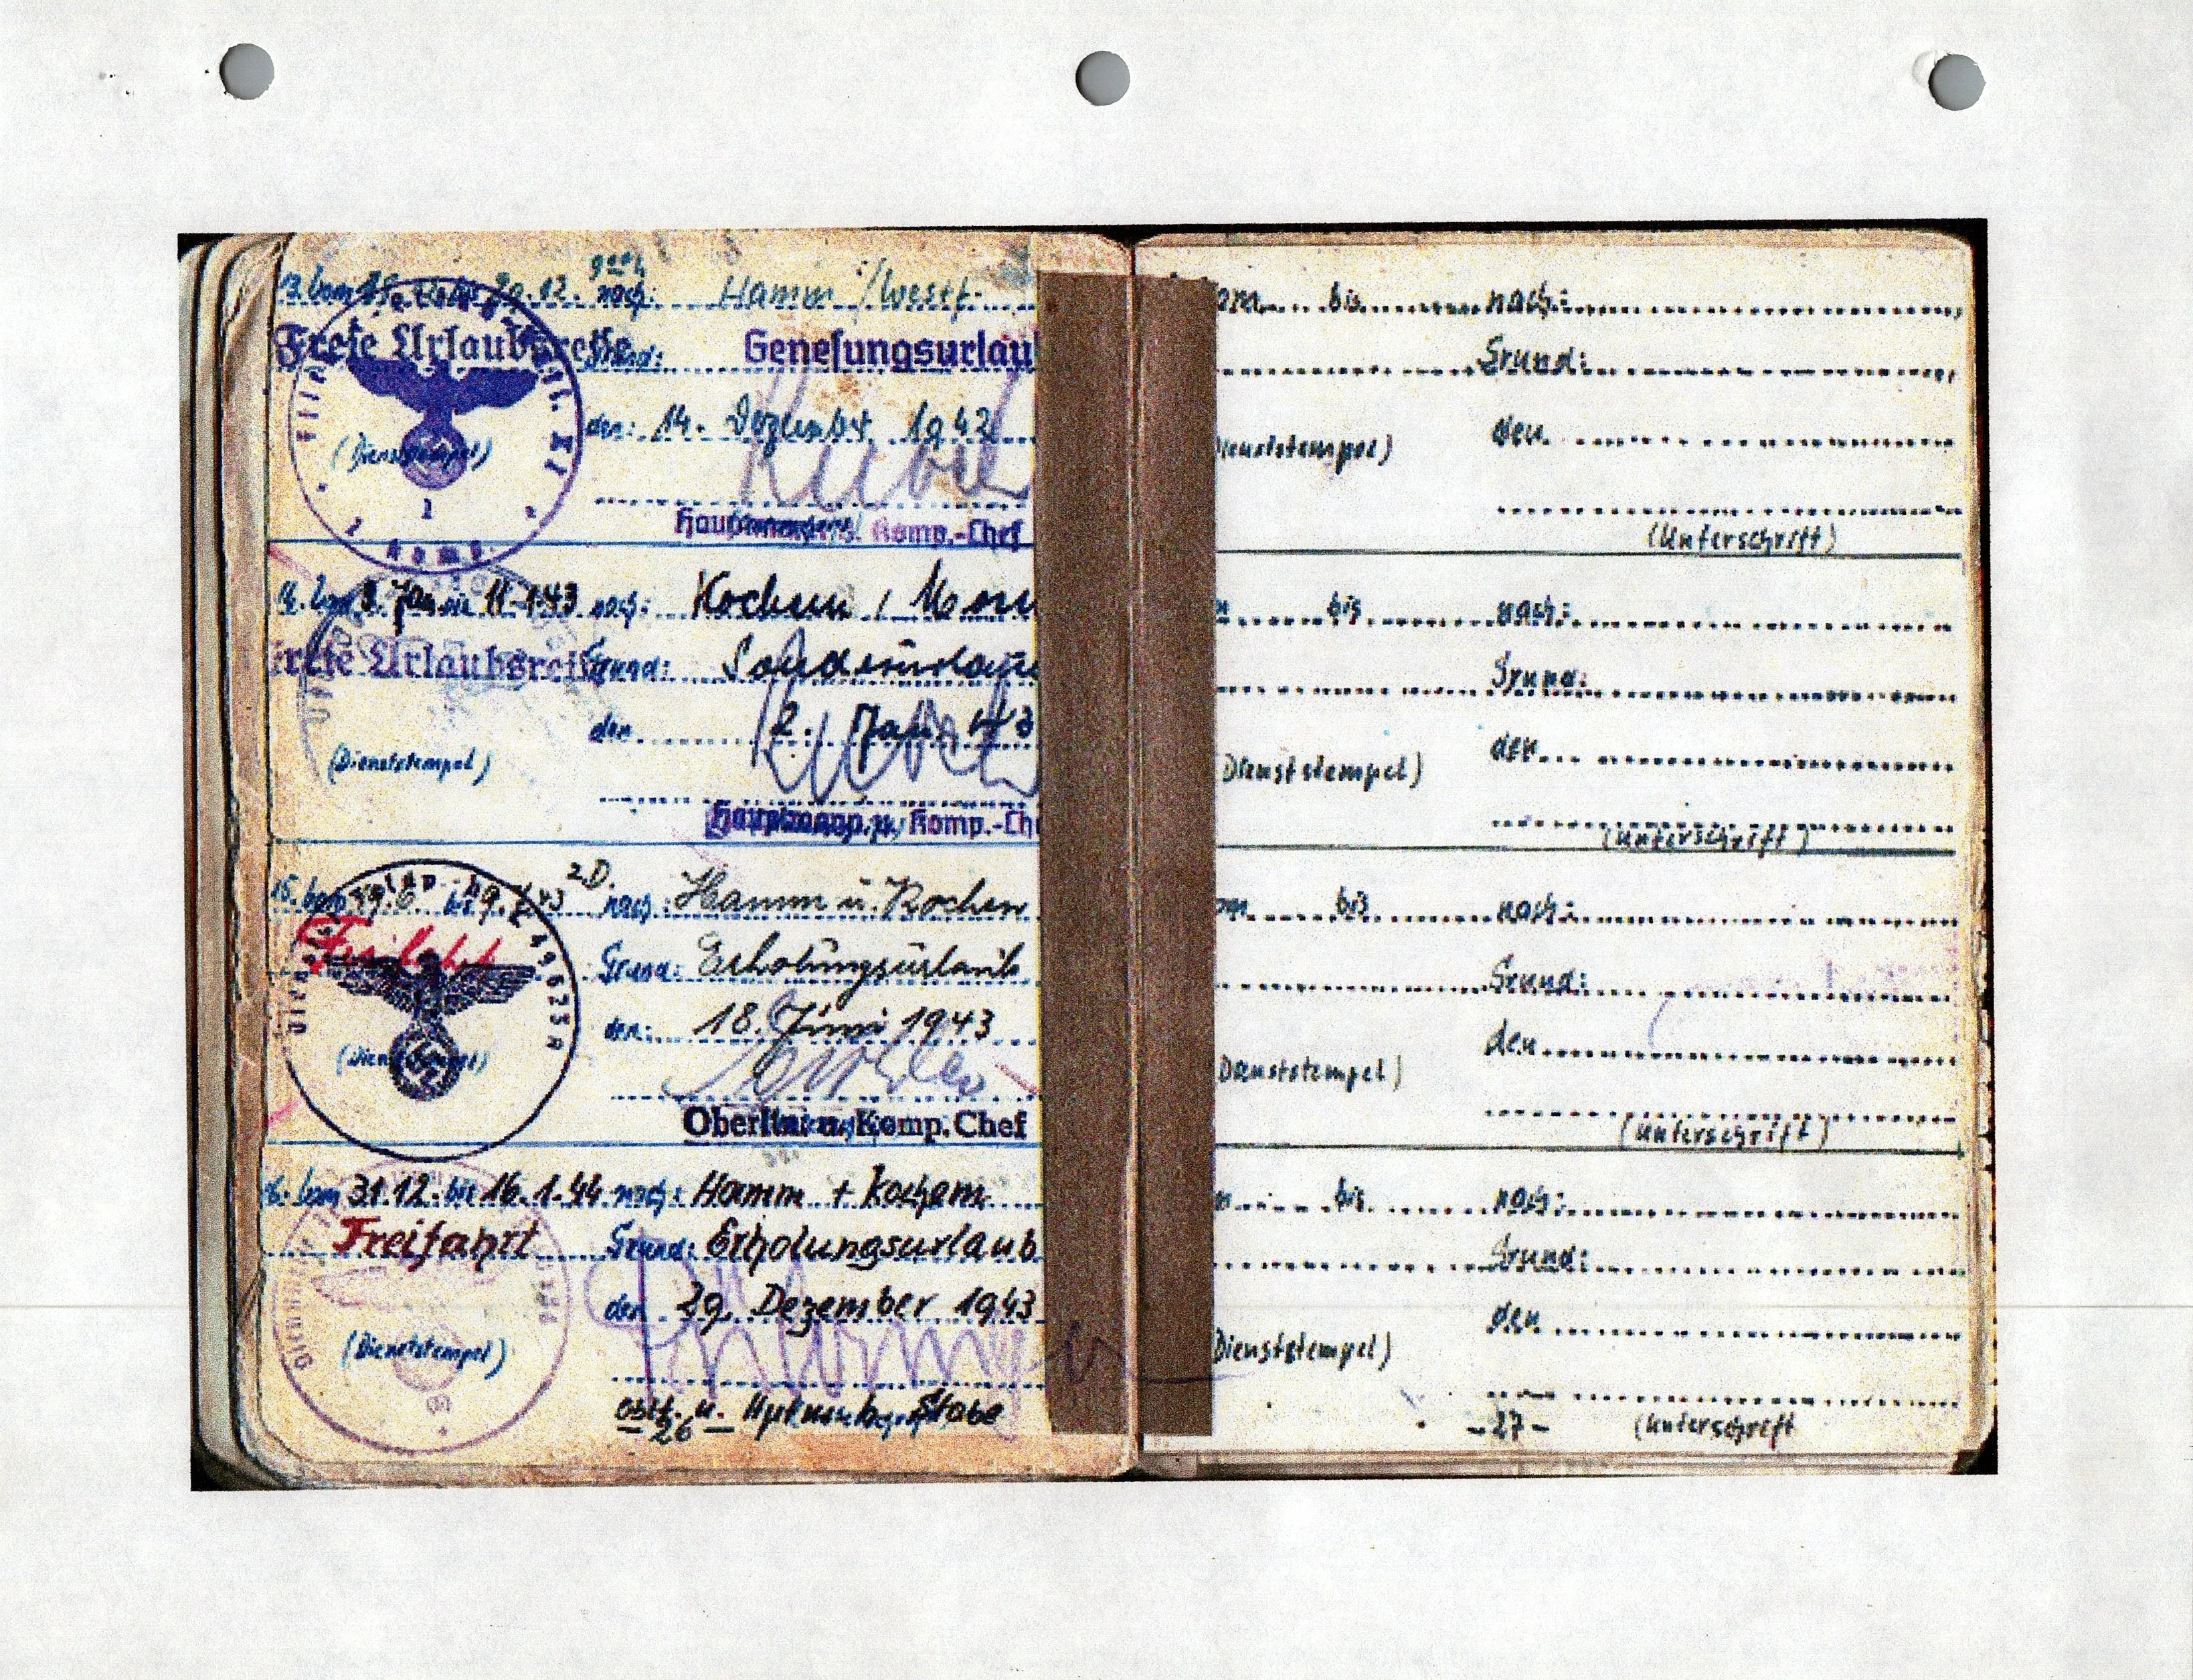 13. vom bis 30.12. nach: Hamm /Westf.
Freie Urlaubsreise Grund: Genesungsurlau
den: 14. Dezember 1942
(Dienststempel)
Hauptmann u. Komp.-Chef
1
1 Komp.
14. vom 3. Jan. bis 11.1.43 nach: Kochem / Mose
Freie Urlaubsreise Grund: Sonderurlau
den 2. Jan. 43
(Dienststempel)
Hauptmann u. Komp.-Che
2D.
15. vom 19.6 bis nach: Hamm u. Kochem
Freifahrt Grund: Erholungsurlaub
den: 18. Juni 1943
(Dienststempel)
Oberltn. u. Komp. Chef
16. vom 31.12. bis 16.1.44 nach: Hamm + Kochem
Freifahrt Grund: Erholungsurlaub
den 29. Dezember 1943
(Dienststempel)
Oblt. u. Stabe
-26-
om bis nach:
Grund:
den
Dienststempel)
(Unterschrift)
m bis nach:
Grund:
den
Dienststempel)
(Unterschrift)
om bis nach:
Grund:
den
Dienststempel)
(Unterschrift)
m bis nach:
Grund:
den
Dienststempel)
-27- (Unterschrift